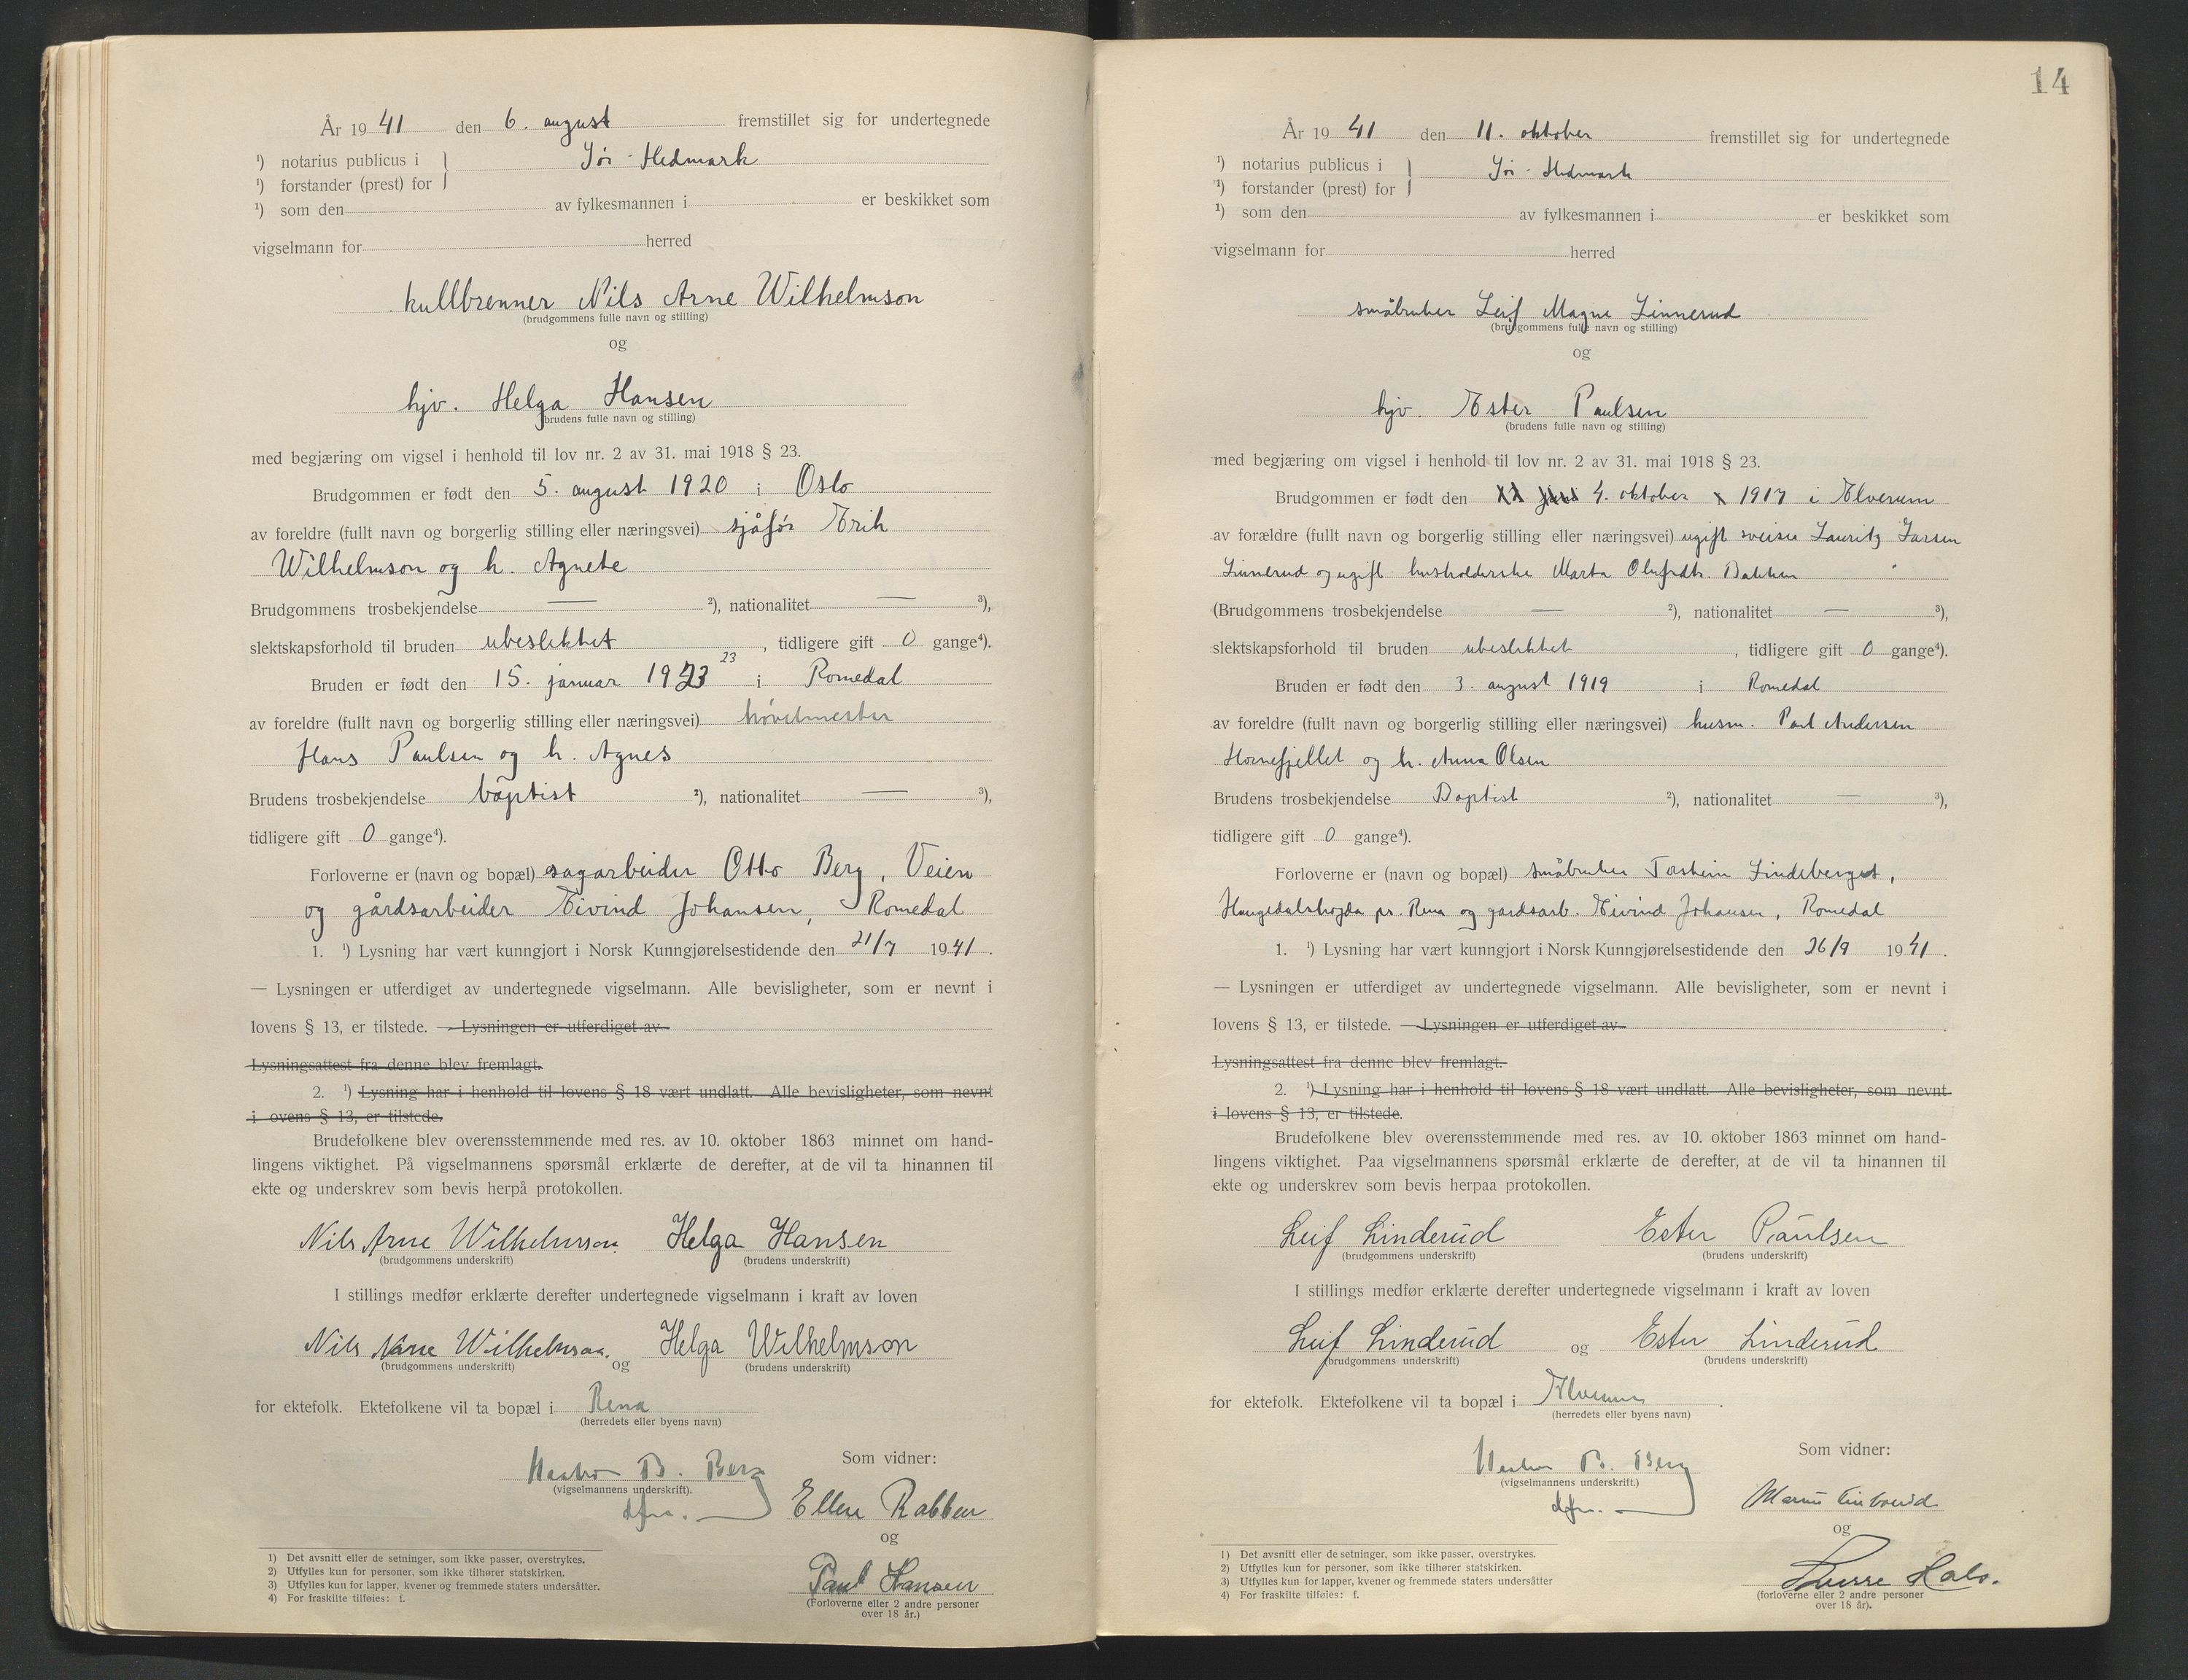 År 19 41 den 6. august fremstillet sig for undertegnede
¹) notarius publicus i
Sør-Hedmark
¹) forstander (prest) for
¹) som den av fylkesmannen i er beskikket som
vigselmann for herred
kullbrenner Nils Arne Wilhelmson
(brudgommens fulle navn og stilling)
og
hjv. Helga Hansen
(brudens fulle navn og stilling)
med begjæring om vigsel i henhold til lov nr. 2 av 31. mai 1918 § 23.
Brudgommen er født den 5. august 1920 i Oslo
av foreldre (fullt navn og borgerlig stilling eller næringsvei) sjåfør Erik
Wilhelmson og h. Agnete
Brudgommens trosbekjendelse — ²), nationalitet — ³),
slektskapsforhold til bruden ubeslektet, tidligere gift 0 gange⁴).
23
Bruden er født den 15. januar 1923 i Romedal
av foreldre (fullt navn og borgerlig stilling eller næringsvei) høvelmester
Hans Paulsen og h. Agnes
Brudens trosbekjendelse baptist ²), nationalitet — ³),
tidligere gift 0 gange⁴).
Forloverne er (navn og bopæl) sagarbeider Otto Berg, Veien
og gårdsarbeider Eivind Johansen, Romedal
1. ¹) Lysning har vært kunngjort i Norsk Kunngjørelsestidende den 21/7 1941.
— Lysningen er utferdiget av undertegnede vigselmann. Alle bevisligheter, som er nevnt i
lovens § 13, er tilstede. — Lysningen er utferdiget av
Lysningsattest fra denne blev fremlagt.
2. ¹) Lysning har i henhold til lovens § 18 vært undlatt. Alle bevisligheter, som nevnt
i ovens § 13, er tilstede.
Brudefolkene blev overensstemmende med res. av 10. oktober 1863 minnet om hand-
lingens viktighet. På vigselmannens spørsmål erklærte de derefter, at de vil ta hinannen til
ekte og underskrev som bevis herpå protokollen.
Nils Arne Wilhelmson. Helga Hansen
(brudgommens underskrift) (brudens underskrift)
I stillings medfør erklærte derefter undertegnede vigselmann i kraft av loven
Nils Arne Wilhelmson. og Helga Wilhelmson
(brudgommens underskrift) (brudens underskrift)
for ektefolk. Ektefolkene vil ta bopæl i Rena
(herredets eller byens navn)
Som vidner:
B. Berg
(vigselmannens underskrift).
dfm.
Ellen Rabben
og
Paul Hansen
(Forloverne eller 2 andre personer
over 18 år.)
1) Det avsnitt eller de setninger, som ikke passer, overstrykes.
2) Utfylles kun for personer, som ikke tilhører statskirken.
3) Utfylles kun for lapper, kvener og fremmede staters undersåtter.
4) For fraskilte tilføies: f.
14
År 19 41 den 11. oktober fremstillet sig for undertegnede
¹) notarius publicus i
Sør-Hedmark
¹) forstander (prest) for
¹) som den av fylkesmannen i er beskikket som
vigselmann for herred
småbruker Leif Magne Linnerud
(brudgommens fulle navn og stilling)
og
hjv. Ester Paulsen
(brudens fulle navn og stilling)
med begjæring om vigsel i henhold til lov nr. 2 av 31. mai 1918 § 23.
Brudgommen er født den 4. oktober 1917 i Elverum
av forældre (fullt navn og borgerlig stilling eller næringsvei) ugift sveiser Lauritz Larsen
Linnerud og ugift husholderske Marta Olufsdtr. Bakken
(Brudgommens trosbekjendelse — ²), nationalitet — ³),
slektskapsforhold til bruden ubeslektet, tidligere gift 0 gange⁴).
Bruden er født den 3. august 1919 i Romedal
av foreldre (fullt navn og borgerlig stilling eller næringsvei) husm. Paul Andersen
Hornefjellet og h. Anna Olsen
Brudens trosbekjendelse Baptist ²), nationalitet — ³),
tidligere gift 0 gange⁴).
Forloverne er (navn og bopæl) småbruker Torstein Lindeberget,
Haugedalshøgda pr. Rena og gardsarb. Eivind Johansen, Romedal
1. ¹) Lysning har vært kunngjort i Norsk Kunngjørelsestidende den 26/9 1941.
— Lysningen er utferdiget av undertegnede vigselmann. Alle bevisligheter, som er nevnt i
lovens § 13, er tilstede. — Lysningen er utferdiget av
Lysningsattest fra denne blev fremlagt.
2. ¹) Lysning har i henhold til lovens § 18 vært undlatt. Alle bevisligheter, som nevnt
i lovens § 13, er tilstede.
Brudefolkene blev overensstemmende med res. av 10. oktober 1863 minnet om hand-
lingens viktighet. Paa vigselmannens spørsmål erklærte de derefter, at de vil ta hinannen til
ekte og underskrev som bevis herpaa protokollen.
Leif Linderud Ester Paulsen
(brudgommens underskrift) (brudens underskrift)
I stillings medfør erklærte derefter undertegnede vigselmann i kraft av loven
Leif Linderud og Ester Linderud
(brudgommens underskrift) (brudens underskrift)
for ektefolk. Ektefolkene vil ta bopæl i Elverum.
(herredets eller byens navn)
Som vidner:
B. Berg
(vigselmannens underskrift.)
dfm.
og
(forloverne eller 2 andre personer
over 18 år).
1) Det avsnitt eller de setninger, som ikke passer, overstrykes.
2) Utfylles kun for personer, som ikke tilhører statskirken.
3) Utfylles kun for lapper, kvener og fremmede staters undersåtter
4) For fraskilte tilføies: f.